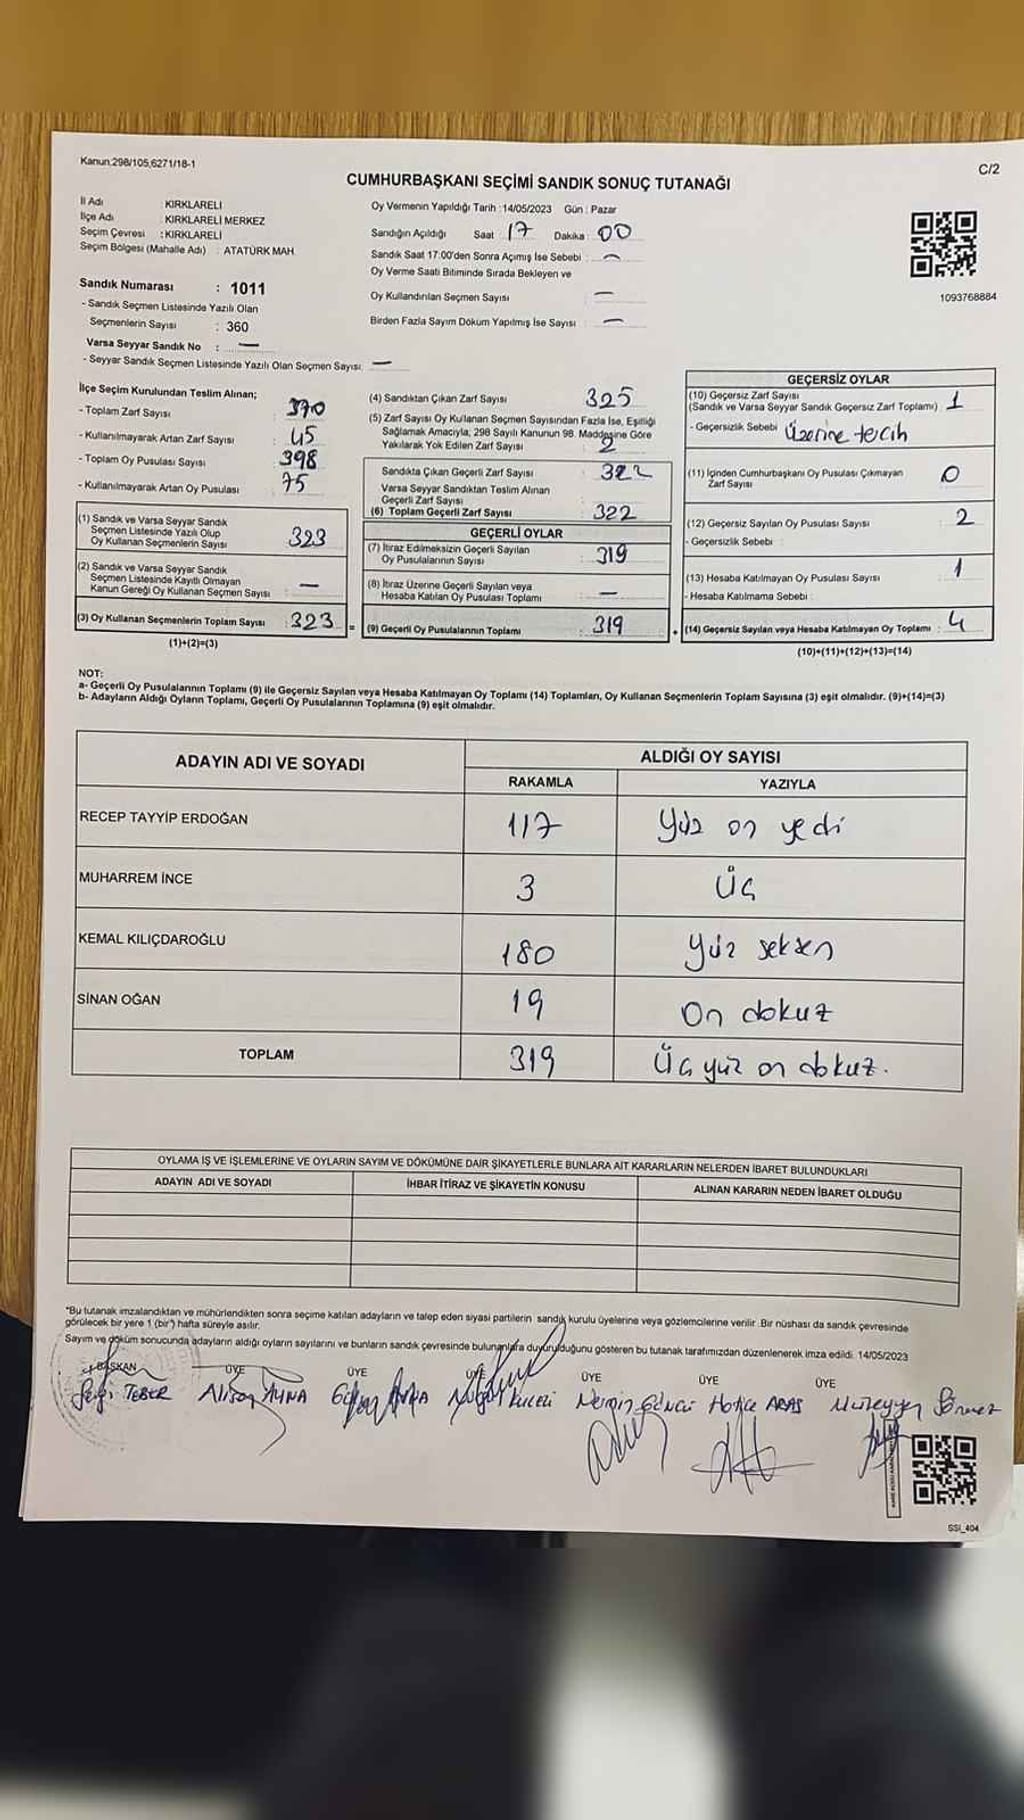 Kanun:298/105,6271/18-1
C/2
CUMHURBAŞKANI SEÇİMİ SANDIK SONUÇ TUTANAĞI
İl Adı KIRKLARELİ
İlçe Adı : KIRKLARELİ MERKEZ
Seçim Çevresi : KIRKLARELİ
Seçim Bölgesi (Mahalle Adı) : ATATÜRK MAH.
Sandık Numarası : 1011
- Sandık Seçmen Listesinde Yazılı Olan
Seçmenlerin Sayısı : 360
Varsa Seyyar Sandık No : —
- Seyyar Sandık Seçmen Listesinde Yazılı Olan Seçmen Sayısı: —
Oy Vermenin Yapıldığı Tarih :14/05/2023 Gün : Pazar
Sandığın Açıldığı Saat 17 Dakika : 00
Sandık Saat 17:00'den Sonra Açımış İse Sebebi : —
Oy Verme Saati Bitiminde Sırada Bekleyen ve
Oy Kullandırılan Seçmen Sayısı : —
Birden Fazla Sayım Döküm Yapılmış İse Sayısı : —
1093768884
İlçe Seçim Kurulundan Teslim Alınan;
- Toplam Zarf Sayısı : 370
- Kullanılmayarak Artan Zarf Sayısı : 45
- Toplam Oy Pusulası Sayısı : 398
- Kullanılmayarak Artan Oy Pusulası : 75
(1) Sandık ve Varsa Seyyar Sandık
Seçmen Listesinde Yazılı Olup
Oy Kullanan Seçmenlerin Sayısı : 323
(2) Sandık ve Varsa Seyyar Sandık
Seçmen Listesinde Kayıtlı Olmayan
Kanun Gereği Oy Kullanan Seçmen Sayısı : —
(3) Oy Kullanan Seçmenlerin Toplam Sayısı : 323 =
(1)+(2)=(3)
(4) Sandıktan Çıkan Zarf Sayısı : 325
(5) Zarf Sayısı Oy Kullanan Seçmen Sayısından Fazla İse, Eşitliği
Sağlamak Amacıyla, 298 Sayılı Kanunun 98. Maddesine Göre
Yakılarak Yok Edilen Zarf Sayısı : 2
Sandıkta Çıkan Geçerli Zarf Sayısı : 322
Varsa Seyyar Sandıktan Teslim Alınan
Geçerli Zarf Sayısı :
(6) Toplam Geçerli Zarf Sayısı : 322
GEÇERLİ OYLAR
(7) İtiraz Edilmeksizin Geçerli Sayılan
Oy Pusulalarının Sayısı : 319
(8) İtiraz Üzerine Geçerli Sayılan veya
Hesaba Katılan Oy Pusulası Toplamı : —
(9) Geçerli Oy Pusulalarının Toplamı : 319 +
GEÇERSİZ OYLAR
(10) Geçersiz Zarf Sayısı
(Sandık ve Varsa Seyyar Sandık Geçersiz Zarf Toplamı) : 1
- Geçersizlik Sebebi : Üzerine tercih
(11) İçinden Cumhurbaşkanı Oy Pusulası Çıkmayan
Zarf Sayısı : 0
(12) Geçersiz Sayılan Oy Pusulası Sayısı : 2
- Geçersizlik Sebebi :
(13) Hesaba Katılmayan Oy Pusulası Sayısı : 1
- Hesaba Katılmama Sebebi :
(14) Geçersiz Sayılan veya Hesaba Katılmayan Oy Toplamı : 4
(10)+(11)+(12)+(13)=(14)
NOT:
a- Geçerli Oy Pusulalarının Toplamı (9) ile Geçersiz Sayılan veya Hesaba Katılmayan Oy Toplamı (14) Toplamları, Oy Kullanan Seçmenlerin Toplam Sayısına (3) eşit olmalıdır. (9)+(14)=(3)
b- Adayların Aldığı Oyların Toplamı, Geçerli Oy Pusulalarının Toplamına (9) eşit olmalıdır.
ADAYIN ADI VE SOYADI ALDIĞI OY SAYISI
RAKAMLA YAZIYLA
RECEP TAYYİP ERDOĞAN 117 Yüz on yedi
MUHARREM İNCE 3 Üç
KEMAL KILIÇDAROĞLU 180 Yüz seksen
SİNAN OĞAN 19 On dokuz
TOPLAM 319 Üç yüz on dokuz.
OYLAMA İŞ VE İŞLEMLERİNE VE OYLARIN SAYIM VE DÖKÜMÜNE DAİR ŞİKAYETLERLE BUNLARA AİT KARARLARIN NELERDEN İBARET BULUNDUKLARI
ADAYIN ADI VE SOYADI İHBAR İTİRAZ VE ŞİKAYETİN KONUSU ALINAN KARARIN NEDEN İBARET OLDUĞU
"Bu tutanak imzalandıktan ve mühürlendikten sonra seçime katılan adayların ve talep eden siyasi partilerin sandık kurulu üyelerine veya gözlemcilerine verilir .Bir nüshası da sandık çevresinde
görülecek bir yere 1 (bir") hafta süreyle asılır.
Sayım ve döküm sonucunda adayların aldığı oyların sayılarını ve bunların sandık çevresinde bulunanlara duyurulduğunu gösteren bu tutanak tarafımızdan düzenlenerek imza edildi. 14/05/2023
BAŞKAN ÜYE ÜYE ÜYE ÜYE ÜYE ÜYE
TEBER Nermin Hatice ARAS
SSI_404